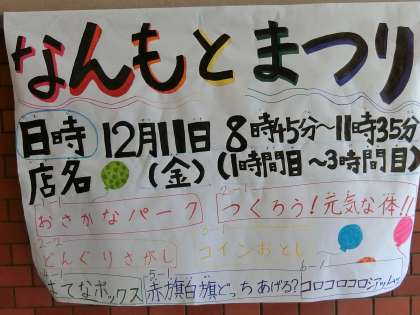 なんもとまつり
日時 12月11日 8時45分～11時35分
店名 (金) (1時間目～3時間目)
1-1 おさかなパーク
2-1 つくろう！元気な体!!
2-2 どんぐりさがし
3-1 コインおとし
4-1 はてなボックス
5-1 赤旗白旗どっちあげる？
6-1 コロコロコロジアム